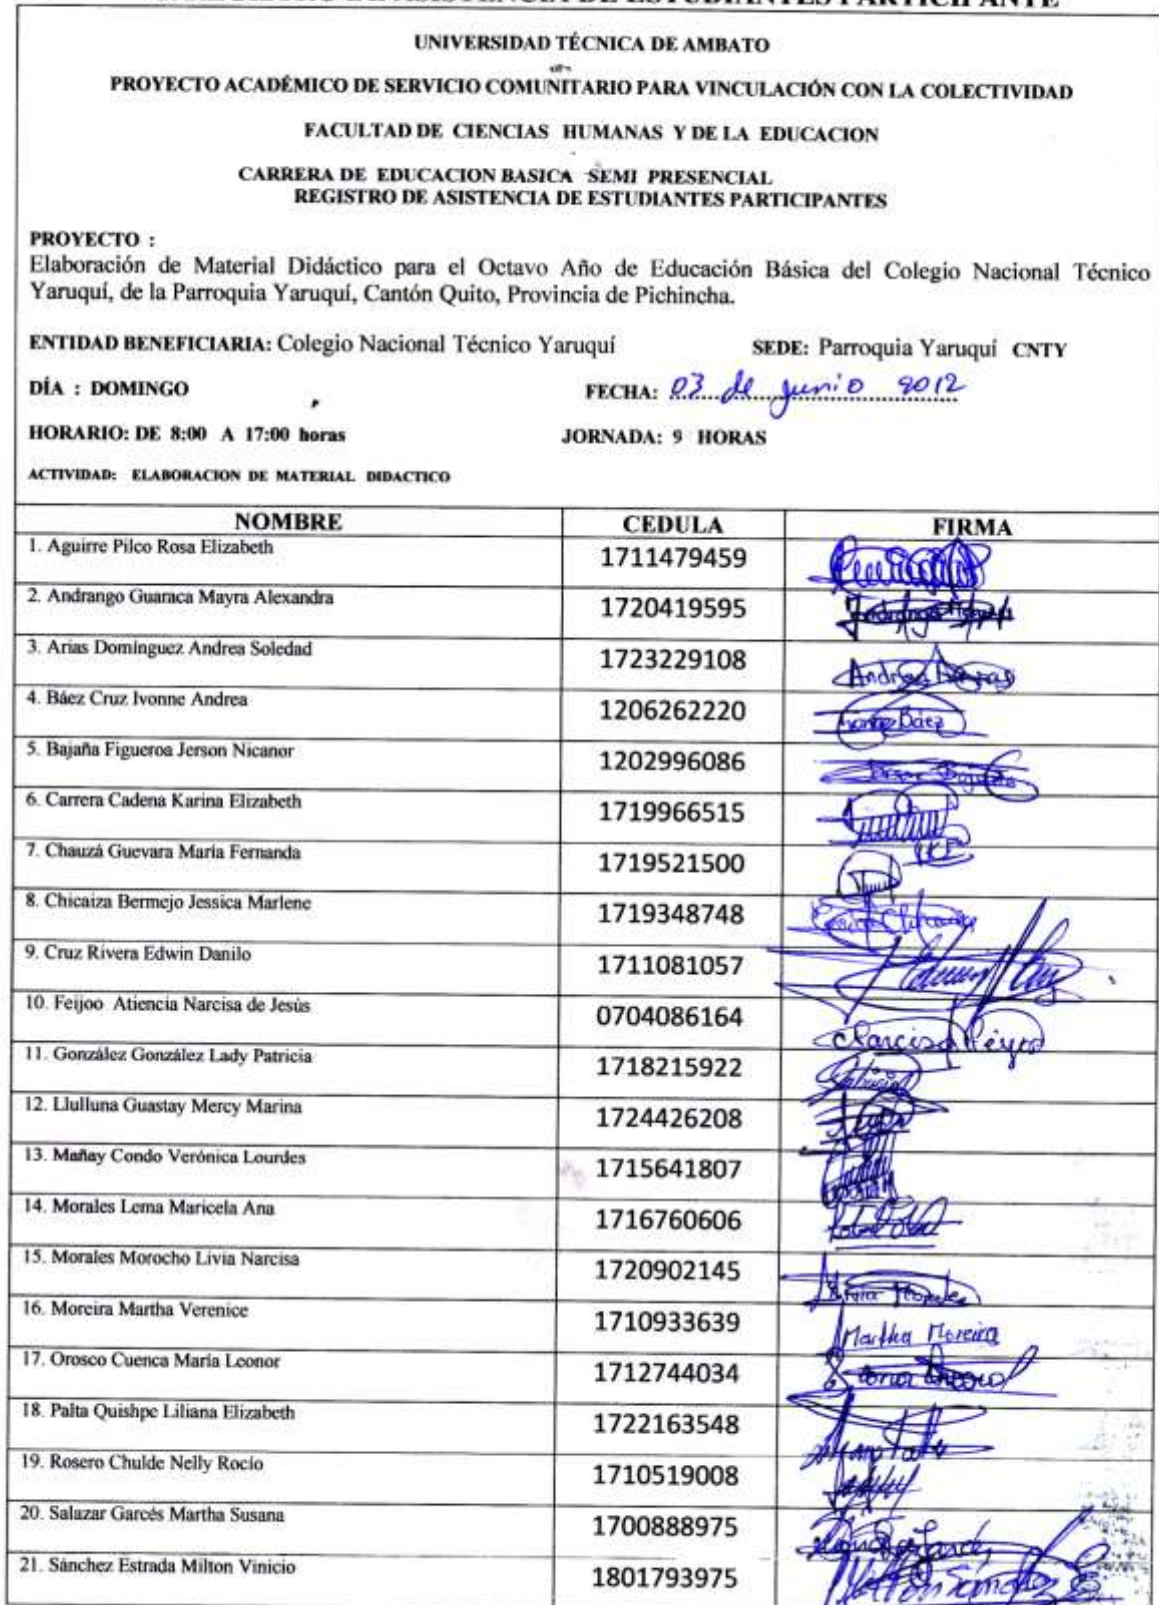 UNIVERSIDAD TÉCNICA DE AMBATO
PROYECTO ACADÉMICO DE SERVICIO COMUNITARIO PARA VINCULACIÓN CON LA COLECTIVIDAD
FACULTAD DE CIENCIAS HUMANAS Y DE LA EDUCACION
CARRERA DE EDUCACION BASICA SEMI PRESENCIAL
REGISTRO DE ASISTENCIA DE ESTUDIANTES PARTICIPANTES
PROYECTO :
Elaboración de Material Didáctico para el Octavo Año de Educación Básica del Colegio Nacional Técnico
Yaruquí, de la Parroquia Yaruquí, Cantón Quito, Provincia de Pichincha.
ENTIDAD BENEFICIARIA: Colegio Nacional Técnico Yaruquí SEDE: Parroquia Yaruquí CNTY
DÍA : DOMINGO FECHA: 03 de junio 2012
HORARIO: DE 8:00 A 17:00 horas JORNADA: 9 HORAS
ACTIVIDAD: ELABORACION DE MATERIAL DIDACTICO
NOMBRE CEDULA FIRMA
1. Aguirre Pilco Rosa Elizabeth 1711479459
2. Andrango Guamca Mayra Alexandra 1720419595
3. Arias Domínguez Andrea Soledad 1723229108 Andrea
4. Báez Cruz Ivonne Andrea 1206262220 Báez
5. Bajaña Figueroa Jerson Nicanor 1202996086
6. Carrera Cadena Karina Elizabeth 1719966515
7. Chauzá Guevara María Fernanda 1719521500
8. Chicaiza Bermejo Jessica Marlene 1719348748
9. Cruz Rivera Edwin Danilo 1711081057
10. Feijoo Atiencia Narcisa de Jesús 0704086164 Narcisa
11. González González Lady Patricia 1718215922
12. Llulluna Guastay Mercy Marina 1724426208
13. Mañay Condo Verónica Lourdes 1715641807
14. Morales Lema Maricela Ana 1716760606
15. Morales Morocho Livia Narcisa 1720902145
16. Moreira Martha Verenice 1710933639 Martha Moreira
17. Orosco Cuenca María Leonor 1712744034
18. Palta Quishpe Liliana Elizabeth 1722163548
19. Rosero Chulde Nelly Rocío 1710519008
20. Salazar Garcés Martha Susana 1700888975
21. Sánchez Estrada Milton Vinicio 1801793975